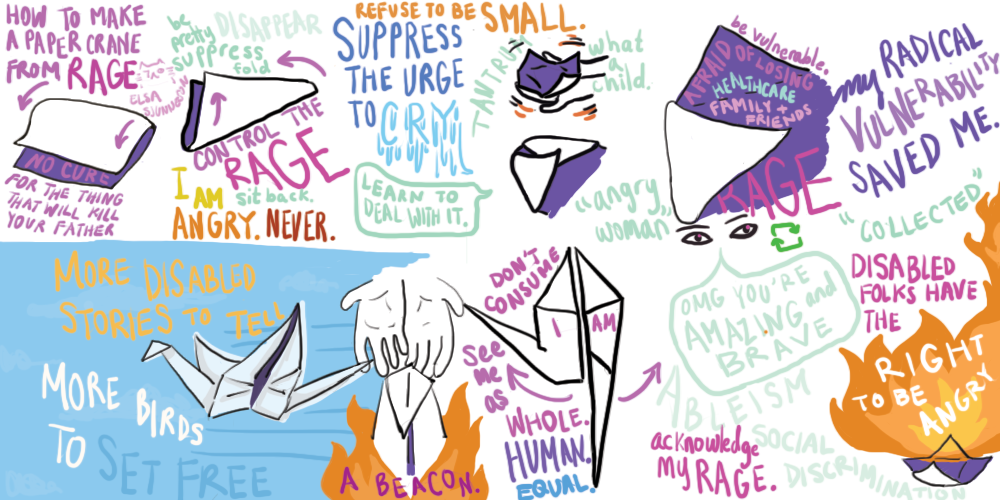 HOW TO MAKE
A PAPER CRANE
FROM RAGE
ELSA
NO CURE
FOR THE THING
THAT WILL KILL
YOUR FATHER
be
pretty
DISAPPEAR
suppress
fold
CONTROL THE
RAGE
I
AM
sit back.
ANGRY. NEVER.
REFUSE TO BE SMALL.
SUPPRESS
THE URGE
TO CRY
LEARN TO
DEAL WITH IT.
TANTRUM
what
a
child.
"angry
woman"
be vulnerable.
AFRAID OF LOSING
HEALTHCARE
FAMILY +
FRIENDS
RAGE
my RADICAL
VULNERABILITY
SAVED ME.
"COLLECTED"
MORE DISABLED
STORIES TO TELL
MORE BIRDS
TO SET FREE
A BEACON.
DON'T
CONSUME
I AM
see
me
as
WHOLE.
HUMAN.
EQUAL.
OMG YOU'RE
AMAZING and
BRAVE
ABLEISM
SOCIAL
DISCRIMINATION
acknowledge
my RAGE.
DISABLED
FOLKS HAVE
THE
RIGHT
TO BE
ANGRY